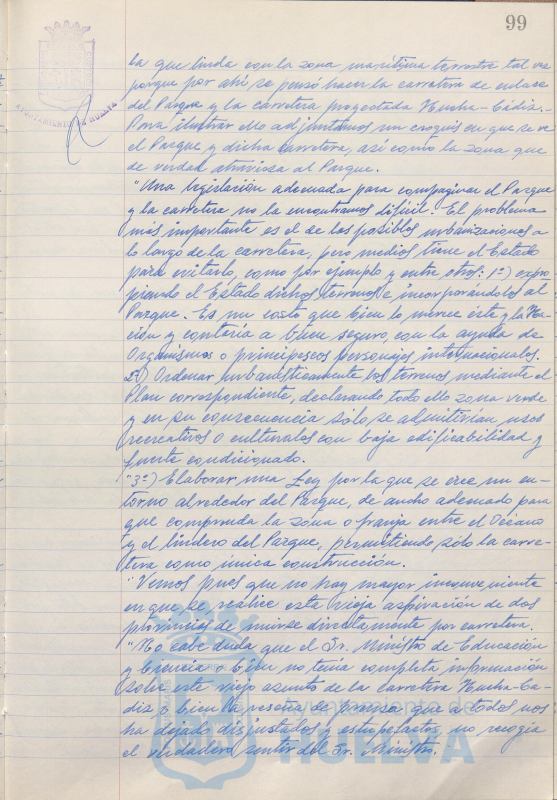 99
AYUNTAMIENTO DE HUELVA
la que linda con la zona marítima terrestre tal vez
porque por ahí se pensó hacer la carretera de enlace
del Parque y la carretera proyectada Huelva-Cádiz.
Para ilustrar ello adjuntamos un croquis en que se ve
el Parque y dicha carretera, así como la zona que
de verdad atraviesa al Parque.
"Una legislación adecuada para compaginar el Parque
y la carretera no la encontramos difícil. El problema
más importante es el de las posibles urbanizaciones a
lo largo de la carretera, pero medios tiene el Estado
para evitarlo, como por ejemplo y entre otros: 1º) expro
piando el Estado dichos terrenos e incorporándolos al
Parque. Es un costo que bien lo merece este y la Na-
ción y contaría a buen seguro, con la ayuda de
Organismos o principescos personajes internacionales.
2º) Ordenar urbanísticamente los terrenos mediante el
Plan correspondiente, declarando todo ello zona verde
y en su consecuencia sólo se admitirían usos
recreativos o culturales con baja edificabilidad y
fuerte condicionado.
"3º) Elaborar una Ley por la que se cree un en-
torno alrededor del Parque, de ancho adecuado para
que comprenda la zona o franja entre el Océano
y el lindero del Parque, permitiendo, sólo la carre-
tera como única construcción.
"Vemos pues que no hay mayor inconveniente
en que se realice esta vieja aspiración de dos
provincias de unirse directamente por carretera.
"No cabe duda que el Sr. Ministro de Educación
y Ciencia o bien no tenía completa información
sobre este viejo asunto de la carretera Huelva-Cá-
diz o bien la reseña de prensa que a todos nos
ha dejado disgustados y estupefactos no recogía
el verdadero sentir del Sr. Ministro.
HUELVA